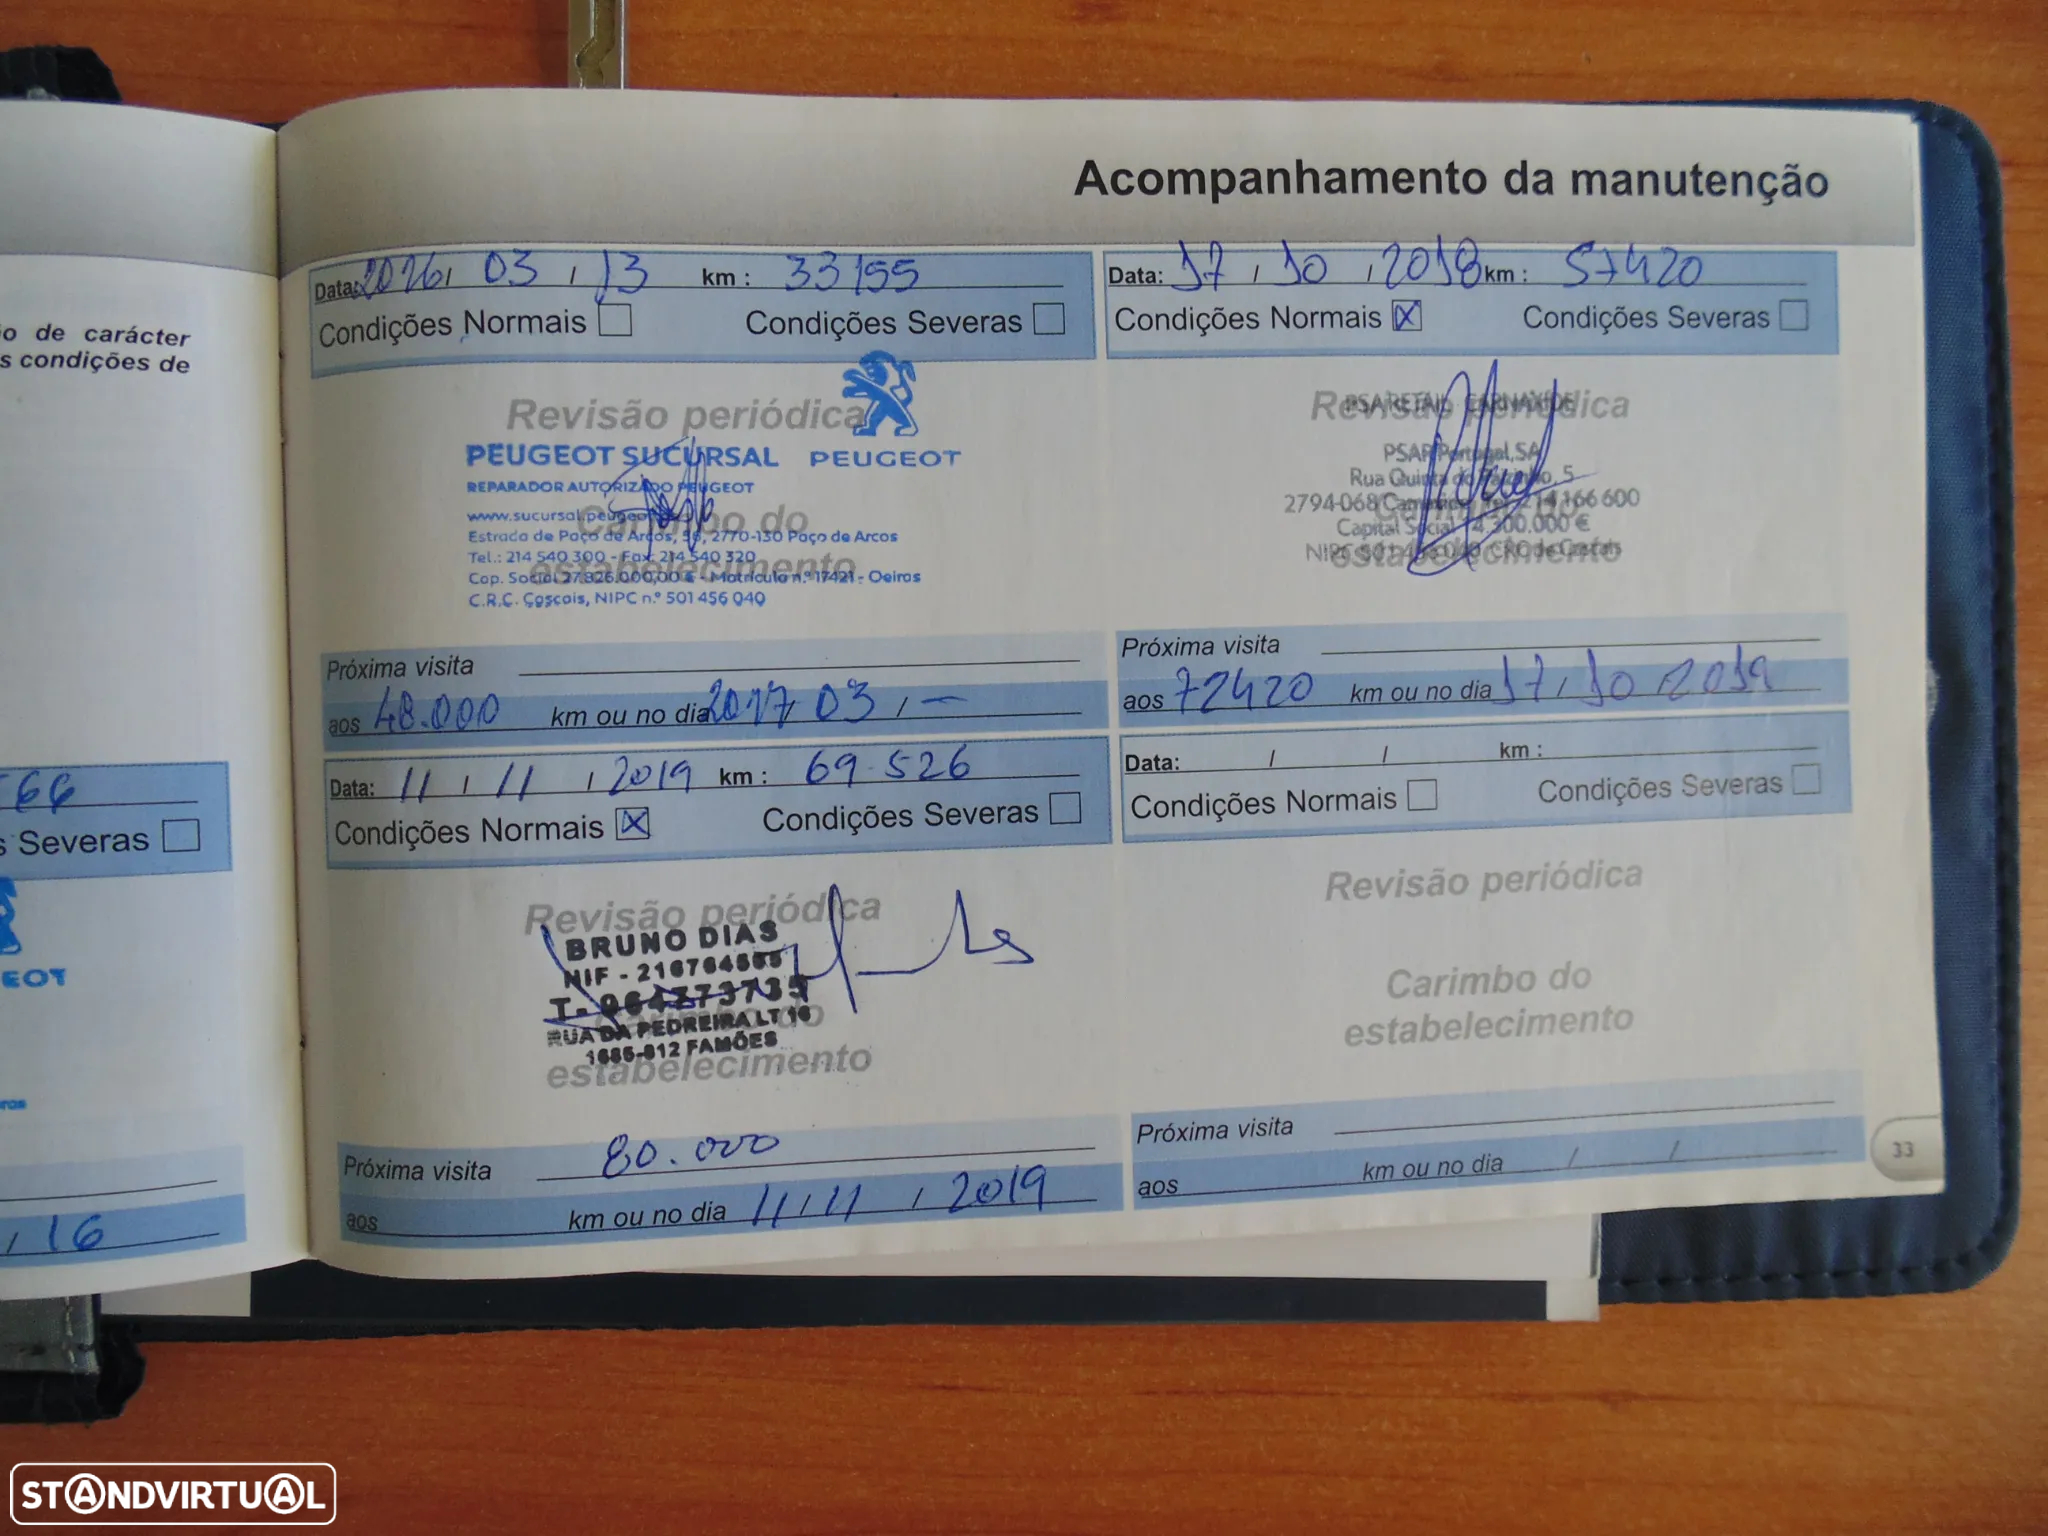 Acompanhamento da manutenção
o de carácter
s condições de
66
s Severas
EOT
/ 16
Data: 2016 / 03 / 13 km : 33155
Condições Normais Condições Severas
Revisão periódica
PEUGEOT SUCURSAL PEUGEOT
REPARADOR AUTORIZADO PEUGEOT
www.sucursal.peugeot
Carimbo do
Estrada de Paço de Arcos, 56, 2770-130 Paço de Arcos
Tel.: 214 540 300 - Fax: 214 540 320
estabelecimento
Cap. Social 27.826.000,00 € - Matrícula n.º 17421 - Oeiras
C.R.C. Cascais, NIPC n.º 501 456 040
Próxima visita
aos 48.000 km ou no dia 2017 / 03 / -
Data: 17 / 10 / 2018 km : 57420
Condições Normais X Condições Severas
Revisão periódica
PSA RETAIL CARNAXIDE
PSAR Portugal, SA
Rua Quinta do 5
2794-068 Carnaxide 214 166 600
Carimbo do
Capital Social 4.300.000 €
estabelecimento
Próxima visita
aos 72420 km ou no dia 17 / 10 / 2019
Data: 11 / 11 / 2019 km : 69.526
Condições Normais X Condições Severas
Revisão periódica
BRUNO DIAS
NIF - 216764565
T- 964273735
Carimbo do
RUA DA PEDREIRA LT 16
1685-612 FAMÕES
estabelecimento
Próxima visita 80.000
aos km ou no dia 11 / 11 / 2019
Data: / / km :
Condições Normais Condições Severas
Revisão periódica
Carimbo do
estabelecimento
Próxima visita
aos km ou no dia / /
33
STANDVIRTUAL